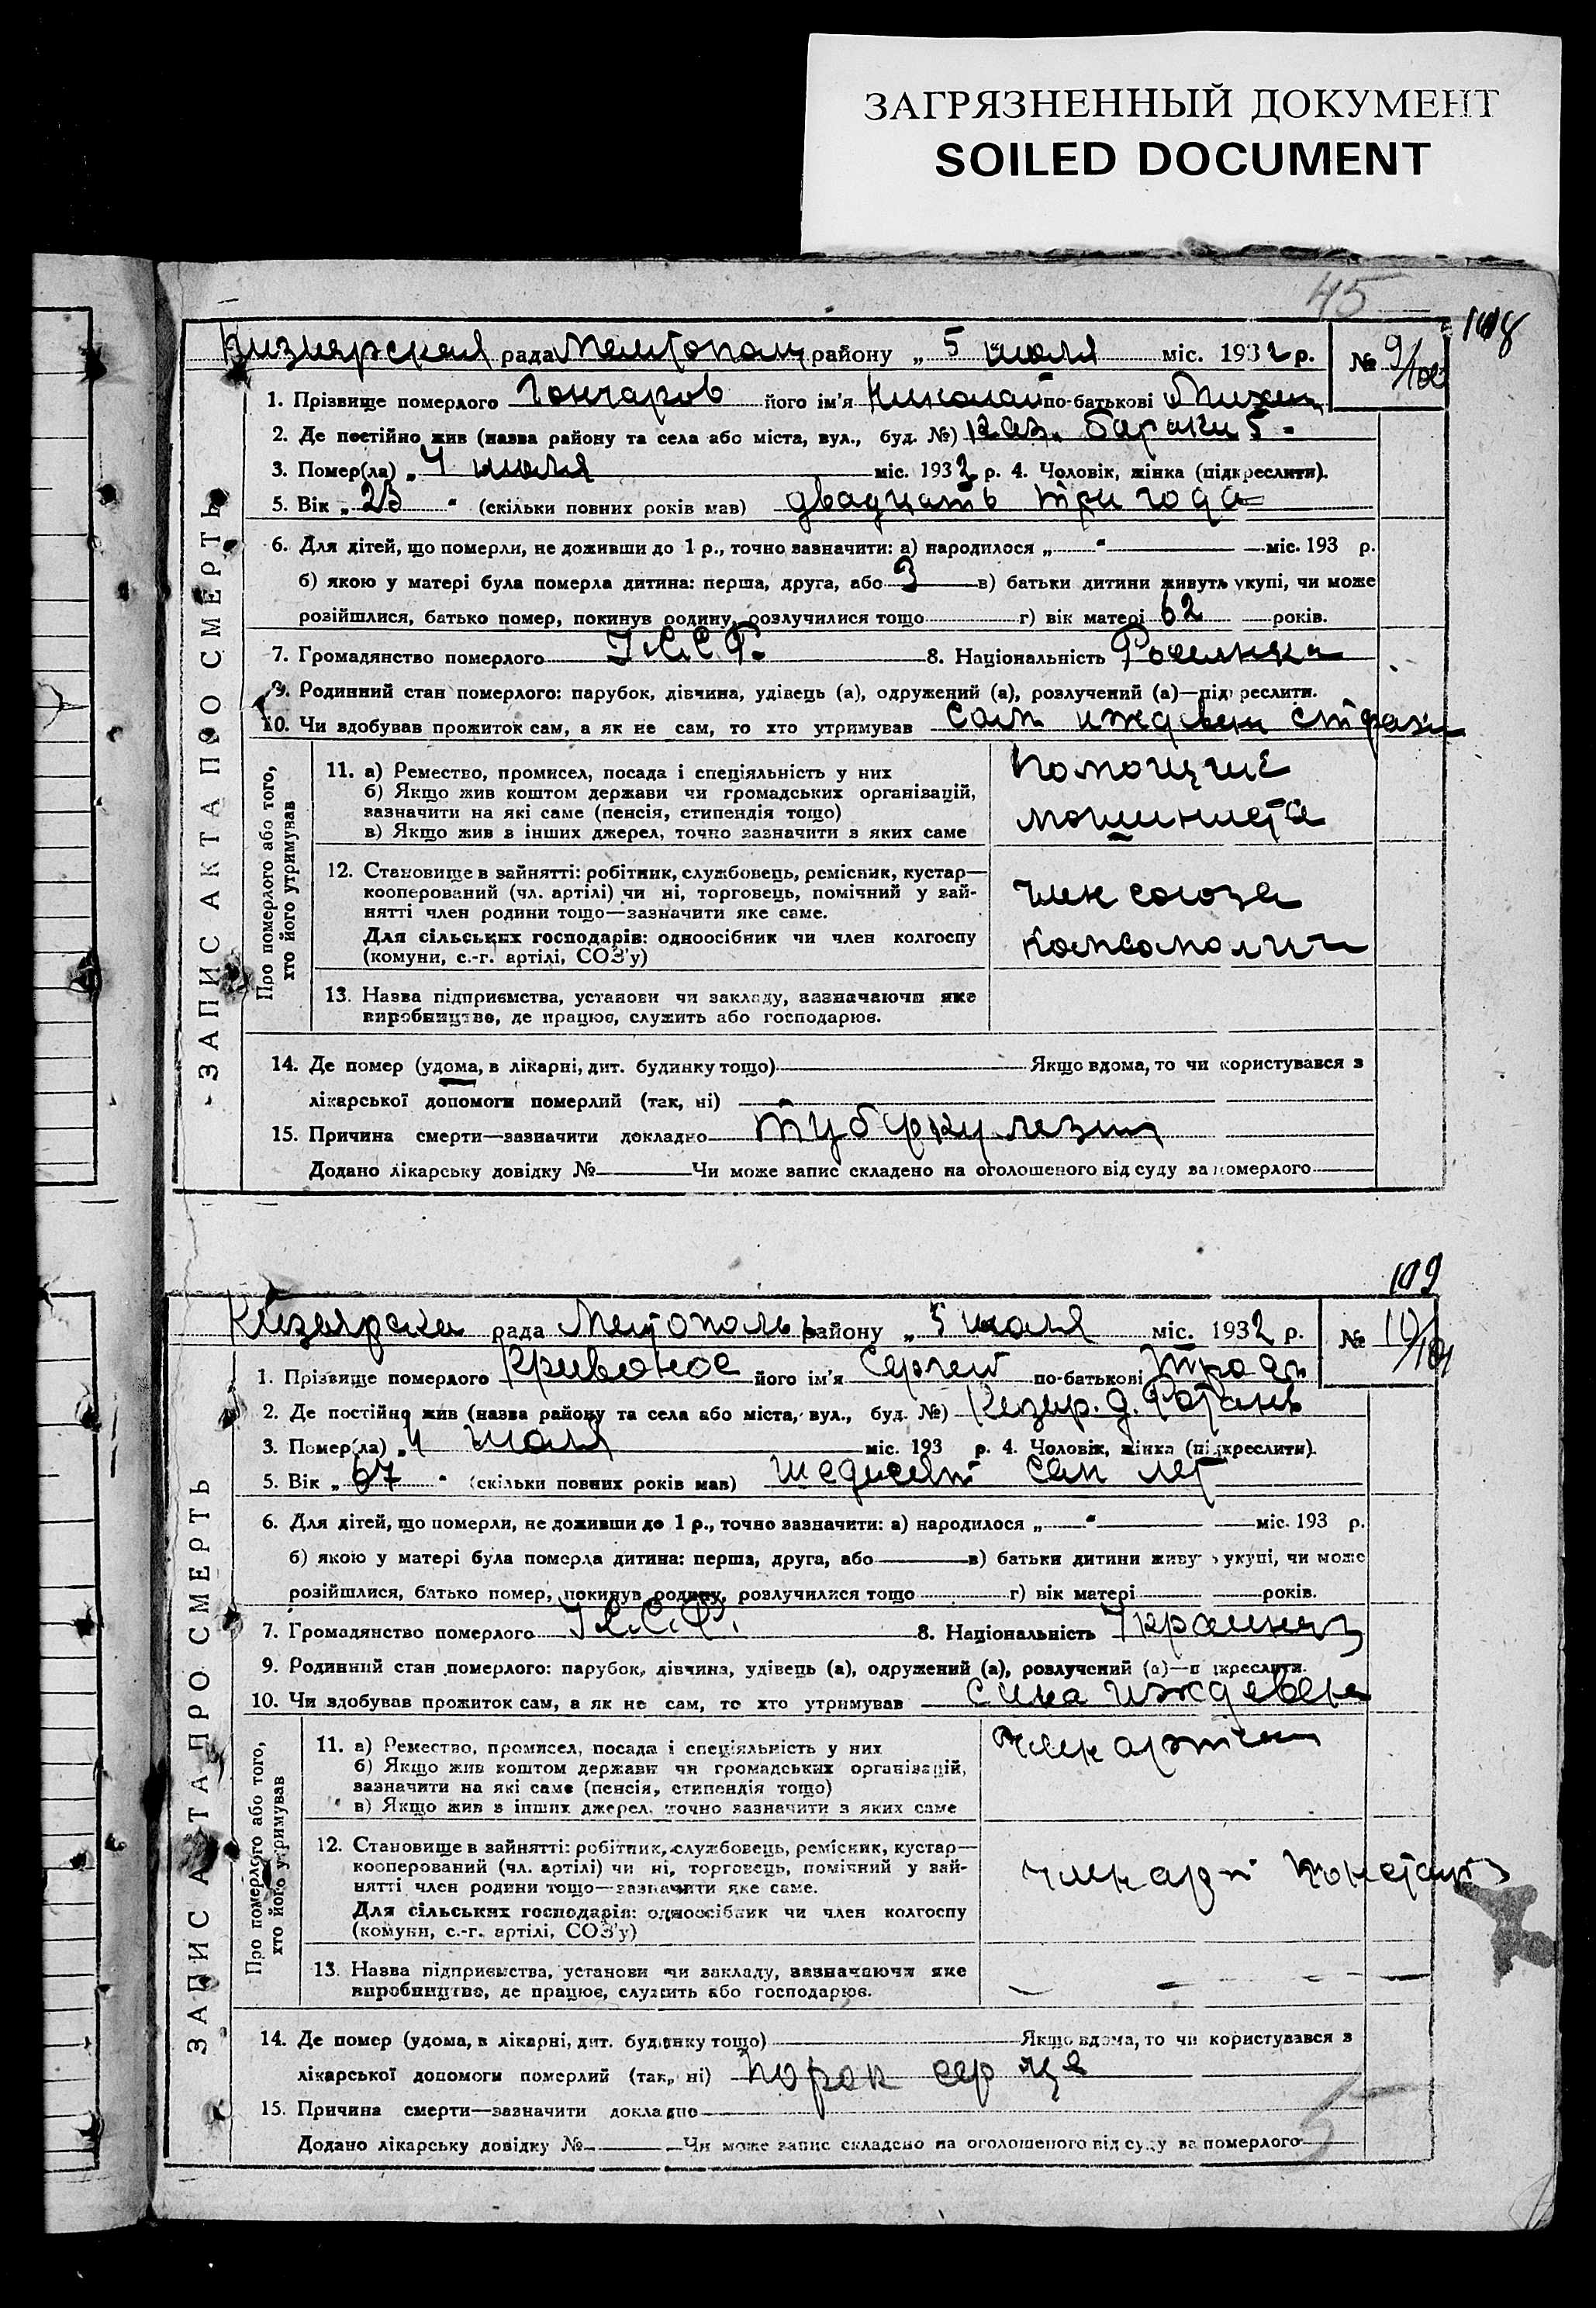 ЗАГРЯЗНЕННЫЙ ДОКУМЕНТ
SOILED DOCUMENT
45
108
рада района „ 5 июля міс. 1932 р. № 9/102
1. Прізвище померлого Гончаров його ім'я Николай по-батькові Михеи
2. Де постійно жив (назва району та села або міста, вул., буд. №) Каз. бараки 5.
3. Помер(ла) „ 4 июля міс. 1932 р. 4. Чоловік, жінка (підкреслити).
5. Вік „ 23 “ (скільки повних років мав) двадцать три года
6. Для дітей, що померли, не доживши до 1 р., точно зазначити: а) народилося „ “ міс. 193 р.
б) якою у матері була померла дитина: перша, друга, або 3 в) батьки дитини живуть укупі, чи може
розійшлися, батько помер, покинув родину, розлучилися тощо г) вік матері 62 років.
7. Громадянство померлого 8. Національність
9. Родинний стан померлого: парубок, дівчина, удівець (а), одружений (а), розлучений (а)—підкреслити.
10. Чи здобував прожиток сам, а як не сам, то хто утримував сам иждевен страхи
ЗАПИС АКТА ПРО СМЕРТЬ
Про померлого або того, хто його утримував
11. а) Ремество, промисел, посада і спеціяльність у них
б) Якщо жив коштом держави чи громадських організацій,
зазначити на які саме (пенсія, стипендія тощо)
в) Якщо жив з інших джерел, точно зазначити з яких саме
помощник
машиниста
12. Становище в зайнятті: робітник, службовець, ремісник, кустар—
кооперований (чл. артілі) чи ні, торговець, помічний у зай-
нятті член родини тощо—зазначити яке саме.
Для сільських господарів: одноосібник чи член колгоспу
(комуни, с.-г. артілі, СОЗ'у)
член союза
комсомолич
13. Назва підприємства, установи чи закладу, зазначаючи яке
виробництво, де працює, служить або господарює.
14. Де помер (удома, в лікарні, дит. будинку тощо) Якщо вдома, то чи користувався з
лікарської допомоги померлий (так, ні)
15. Причина смерти—зазначити докладно тубуркулезни
Додано лікарську довідку № Чи може запис складено на оголошеного від суду за померлого
109
рада Мелитополь району „ 5 июля міс. 1932 р. № 10/
1. Прізвище померлого Кривонос його ім'я Сергей по-батькові
2. Де постійно жив (назва району та села або міста, вул., буд. №)
3. Помер(ла) „ 4 июля міс. 193 р. 4. Чоловік, жінка (підкреслити).
5. Вік „ 67 “ (скільки повних років мав) шедисят сем лет
6. Для дітей, що померли, не доживши до 1 р., точно зазначити: а) народилося „ “ міс. 193 р.
б) якою у матері була померла дитина: перша, друга, або в) батьки дитини живуть укупі, чи може
розійшлися, батько помер, покинув родину, розлучилися тощо г) вік матері років.
7. Громадянство померлого 8. Національність Украинец
9. Родинний стан померлого: парубок, дівчина, удівець (а), одружений (а), розлучений (а)—підкреслити.
10. Чи здобував прожиток сам, а як не сам, то хто утримував сина иждевен
ЗАПИС АКТА ПРО СМЕРТЬ
Про померлого або того, хто його утримував
11. а) Ремество, промисел, посада і спеціяльність у них
б) Якщо жив коштом держави чи громадських організацій,
зазначити на які саме (пенсія, стипендія тощо)
в) Якщо жив з інших джерел, точно зазначити з яких саме
член артели
12. Становище в зайнятті: робітник, службовець, ремісник, кустар—
кооперований (чл. артілі) чи ні, торговець, помічний у зай-
нятті член родини тощо—зазначити яке саме.
Для сільських господарів: одноосібник чи член колгоспу
(комуни, с.-г. артілі, СОЗ'у)
член арт
13. Назва підприємства, установи чи закладу, зазначаючи яке
виробництво, де працює, служить або господарює.
14. Де помер (удома, в лікарні, дит. будинку тощо) Якщо вдома, то чи користувався з
лікарської допомоги померлий (так, ні) порок серце
15. Причина смерти—зазначити докладно
Додано лікарську довідку № Чи може запис складено на оголошеного від суду за померлого
5